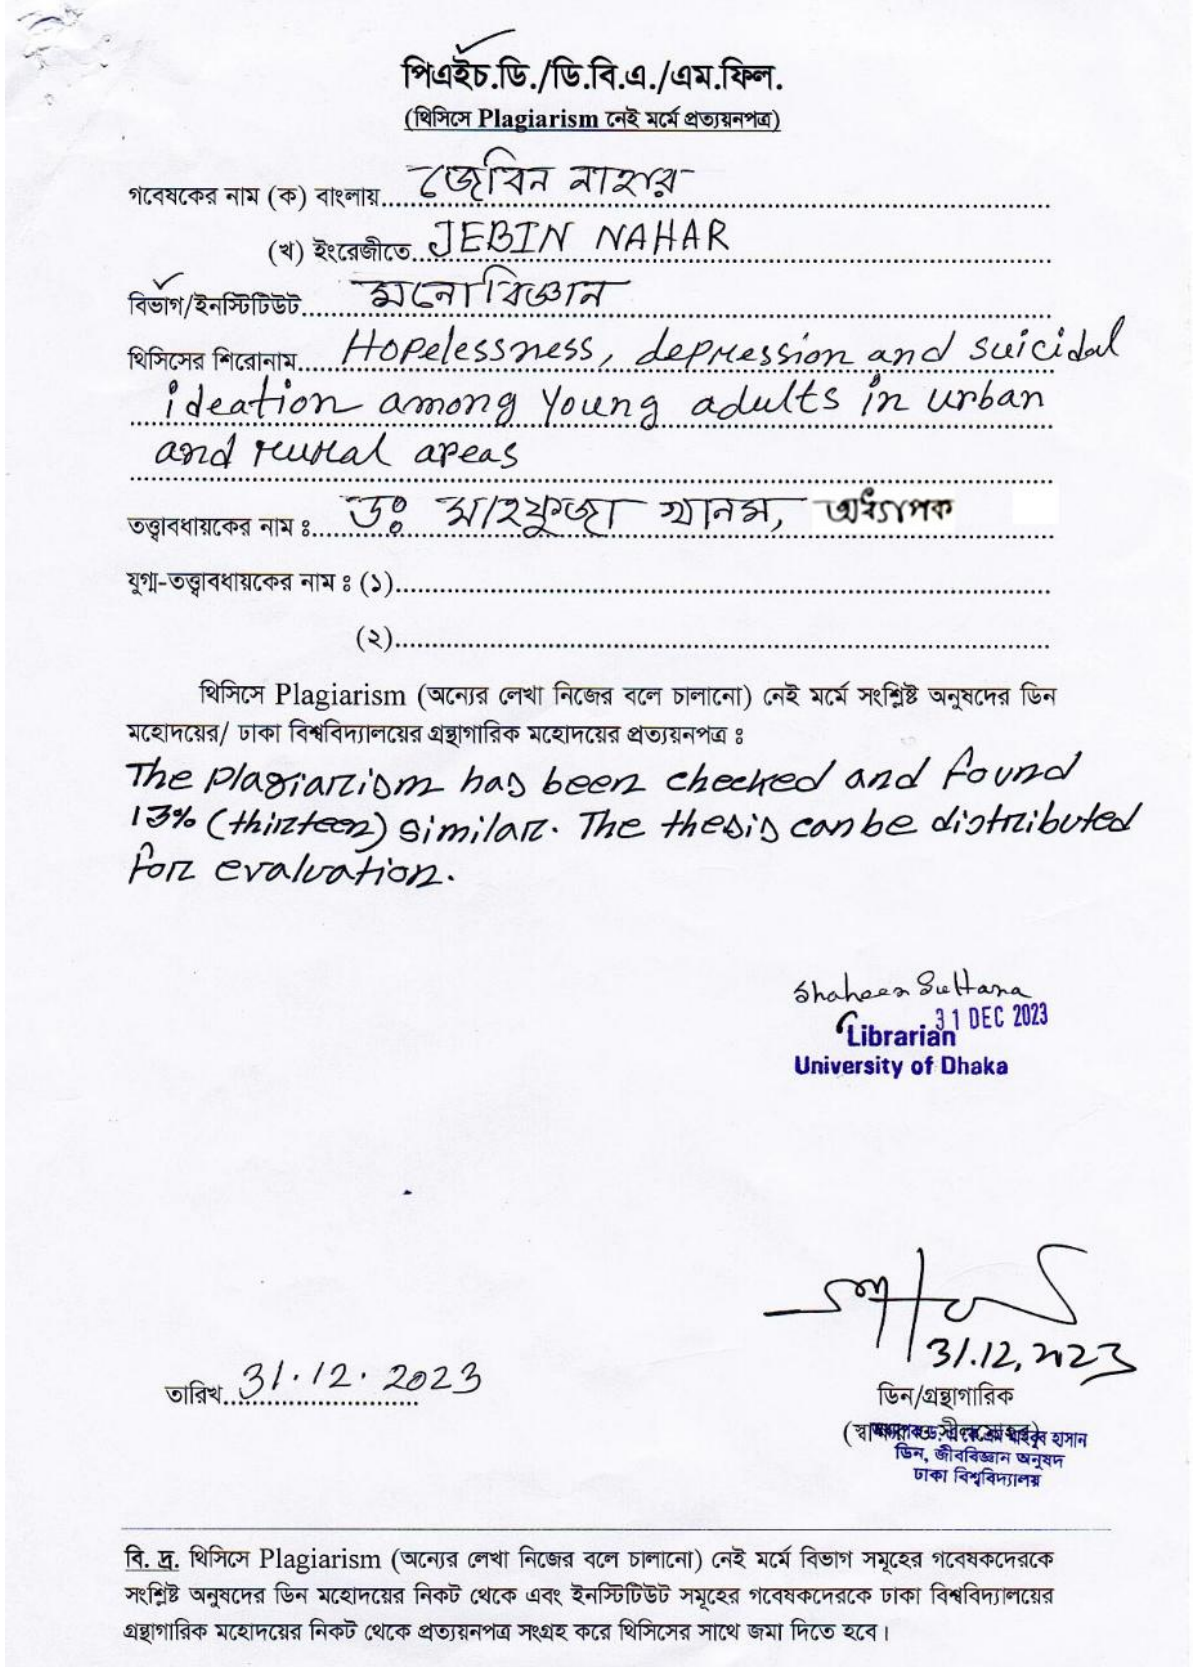 পিএইচ.ডি./ডি.বি.এ./এম.ফিল.
(থিসিসে Plagiarism নেই মর্মে প্রত্যয়নপত্র)
গবেষকের নাম (ক) বাংলায়..... জেবিন নাহার
(খ) ইংরেজীতে.. JEBIN NAHAR
বিভাগ/ইনস্টিটিউট..... মনোবিজ্ঞান
থিসিসের শিরোনাম.... Hopelessness, depression and suicidal
ideation among young adults in urban
and rural areas
তত্ত্বাবধায়কের নাম ঃ..... ডঃ মাহফুজা খানম, অধ্যাপক
যুগ্ম-তত্ত্বাবধায়কের নাম ঃ (১).....
(২).....
থিসিসে Plagiarism (অন্যের লেখা নিজের বলে চালানো) নেই মর্মে সংশ্লিষ্ট অনুষদের ডিন
মহোদয়ের/ ঢাকা বিশ্ববিদ্যালয়ের গ্রন্থাগারিক মহোদয়ের প্রত্যয়নপত্র ঃ
The plagiarism has been checked and found
13% (thirteen) similar. The thesis can be distributed
for evaluation.
Shaheen Sultana
31 DEC 2023
Librarian
University of Dhaka
31.12.2023
তারিখ..... 31.12.2023
ডিন/গ্রন্থাগারিক
হাসান
ডিন, জীববিজ্ঞান অনুষদ
ঢাকা বিশ্ববিদ্যালয়
বি. দ্র. থিসিসে Plagiarism (অন্যের লেখা নিজের বলে চালানো) নেই মর্মে বিভাগ সমূহের গবেষকদেরকে
সংশ্লিষ্ট অনুষদের ডিন মহোদয়ের নিকট থেকে এবং ইনস্টিটিউট সমূহের গবেষকদেরকে ঢাকা বিশ্ববিদ্যালয়ের
গ্রন্থাগারিক মহোদয়ের নিকট থেকে প্রত্যয়নপত্র সংগ্রহ করে থিসিসের সাথে জমা দিতে হবে।